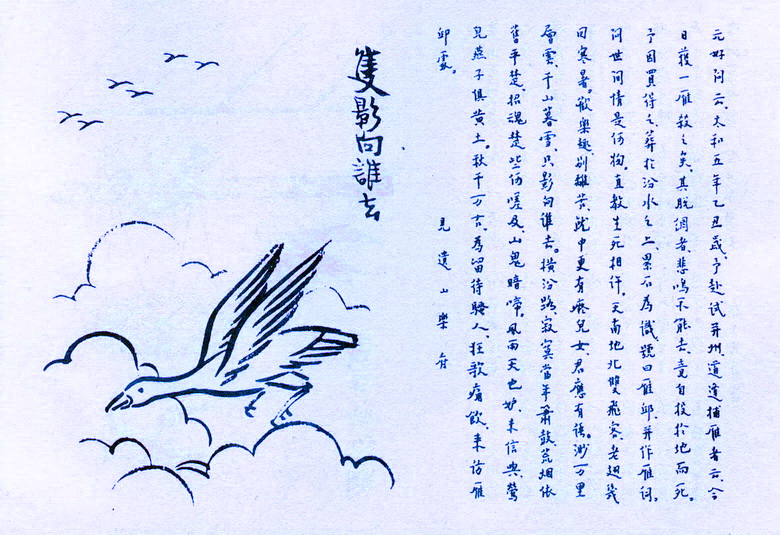 元好问云、太和五年乙丑歲、予赴试并州、道逢捕雁者云、今
日獲一雁、殺之矣。其脱網者、悲鳴不能去、竟自投於地而死。
予因買得之、葬於汾水之上、累石為識、號曰雁邱、并作雁词。
问世间情是何物、直教生死相许。天南地北雙飛客、老翅幾
回寒暑。歡樂趣、别離苦、就中更有痴兒女、君應有语。渺万里
層雲、千山暮雪、只影向谁去。横汾路、寂寞當年萧鼓、荒烟依
舊平楚、招魂楚些何嗟及、山鬼暗啼。風雨天也妒、未信與、鶯
兒燕子俱黄土。秋千万古、為留待騷人、狂歌痛飲、来访雁
邱處。 見遺山樂府
隻影向誰去